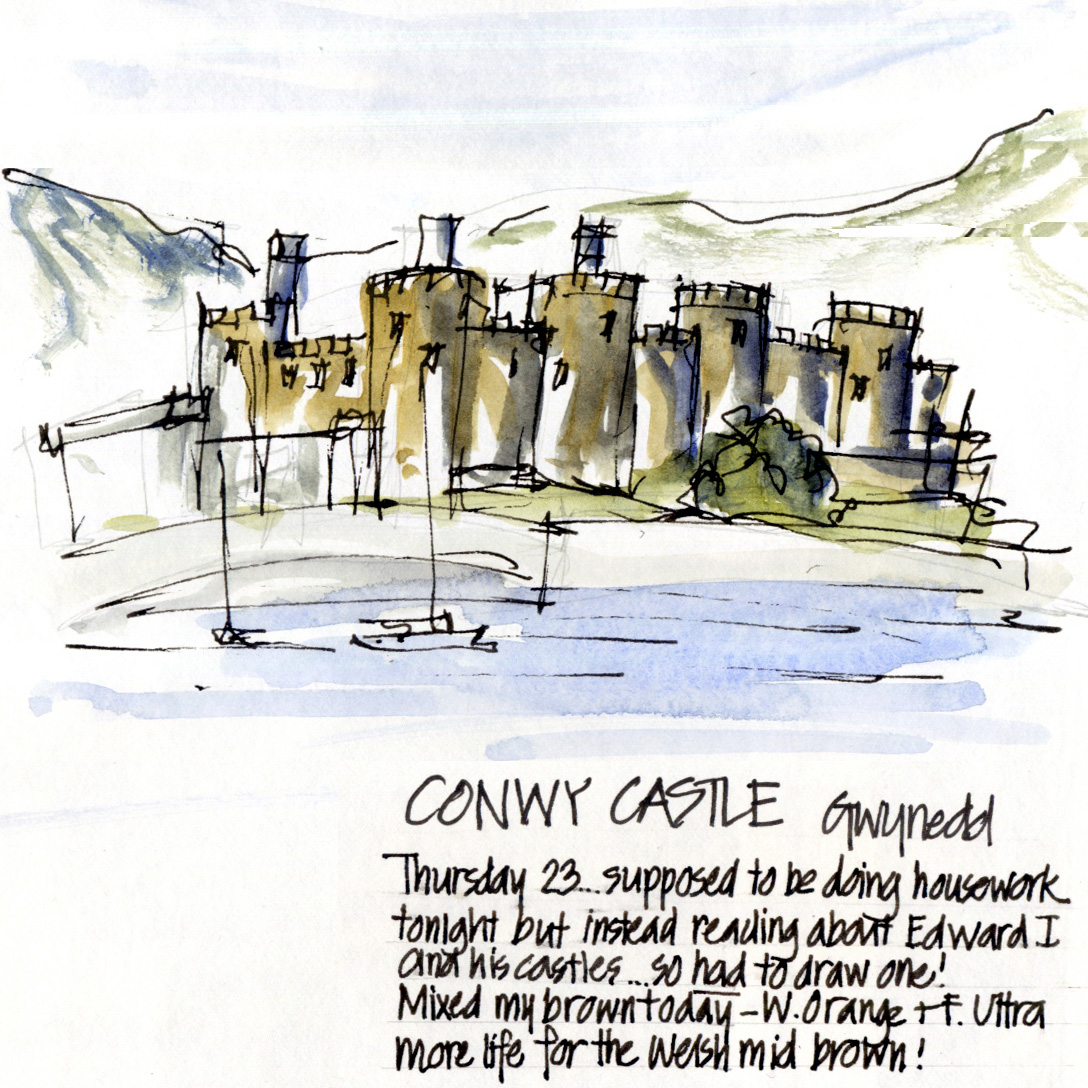 CONWY CASTLE Gwynedd
Thursday 23...supposed to be doing housework
tonight but instead reading about Edward I
and his castles...so had to draw one!
Mixed my brown today - W. Orange + F. Ultra
more life for the Welsh mid brown!